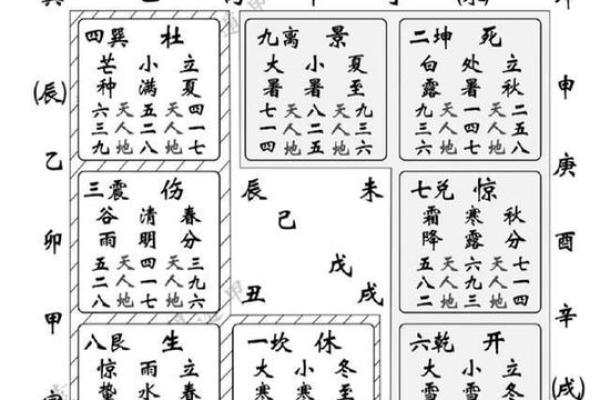 四巽 杜
芒 小 立
种 满 夏
六 天 五 天 四
三 人 二 人 一
九 地 八 地 七
九离 景
大 小 夏
暑 暑 至
七 天 八 天 九
一 人 二 人 三
四 地 五 地 六
二坤 死
白 处 立
露 暑 秋
九 天 一 天 二
三 人 四 人 五
六 地 七 地 八
(辰)
乙
卯
甲
三震 伤
谷 清 春
雨 明 分
五 天 四 天 三
二 人 一 人 九
八 地 七 地 六
辰 未
己
戊
丑 戌
七兑 惊
霜 寒 秋
降 露 分
五 天 六 天 七
八 人 九 人 一
二 地 三 地 四
申
庚
酉
辛
(戌)
八艮 生
惊 雨 立
蛰 水 春
一坎 休
大 小 冬
寒 寒 至
六乾 开
大 小 立
雪 雪 冬